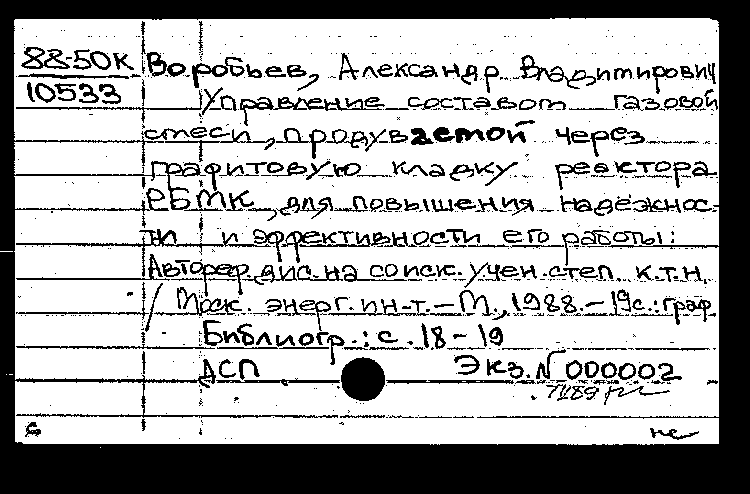 88-50К
10533
Воробьев, Александр Владимирович
Управление составом газовой
смеси, продуваемой через
графитовую кладку реактора
РБМК, для повышения надежнос-
ти и эффективности его работы:
Автореф. дис. на соиск. учен. степ. к.т.н.
/ Моск. энерг. ин-т. – М., 1988. – 19с.: граф.
Библиогр.: с. 18-19
ДСП Экз. N 000002
не